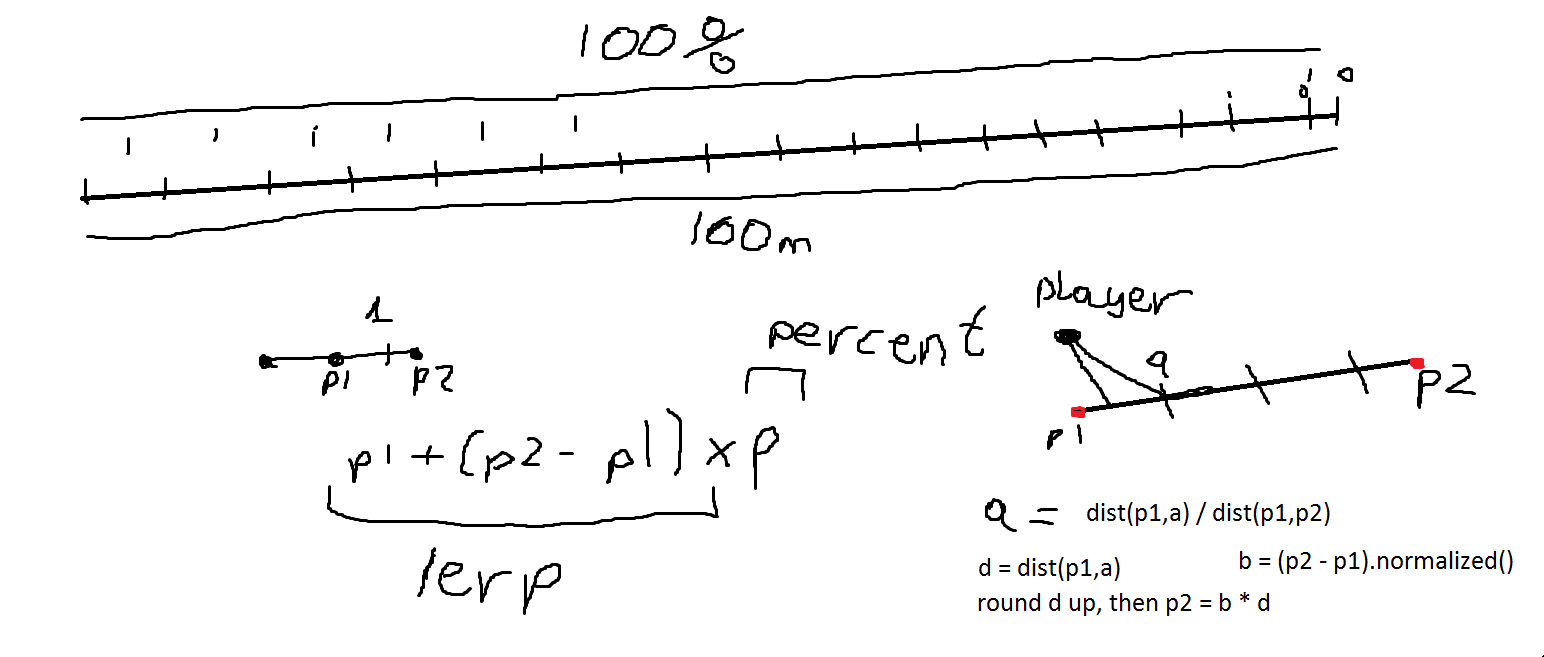 100%
1 1 1 1 1 1
100m
1
p1 p2
percent
p1 + (p2 - p1) x p
lerp
player
a
p1
p2
a = dist(p1,a) / dist(p1,p2)
d = dist(p1,a)
b = (p2 - p1).normalized()
round d up, then p2 = b * d